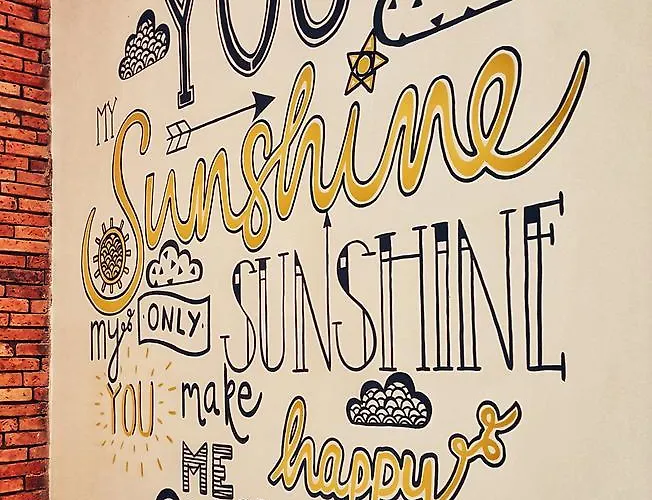 YOU
MY Sunshine
my ONLY SUNSHINE
YOU make
ME happy